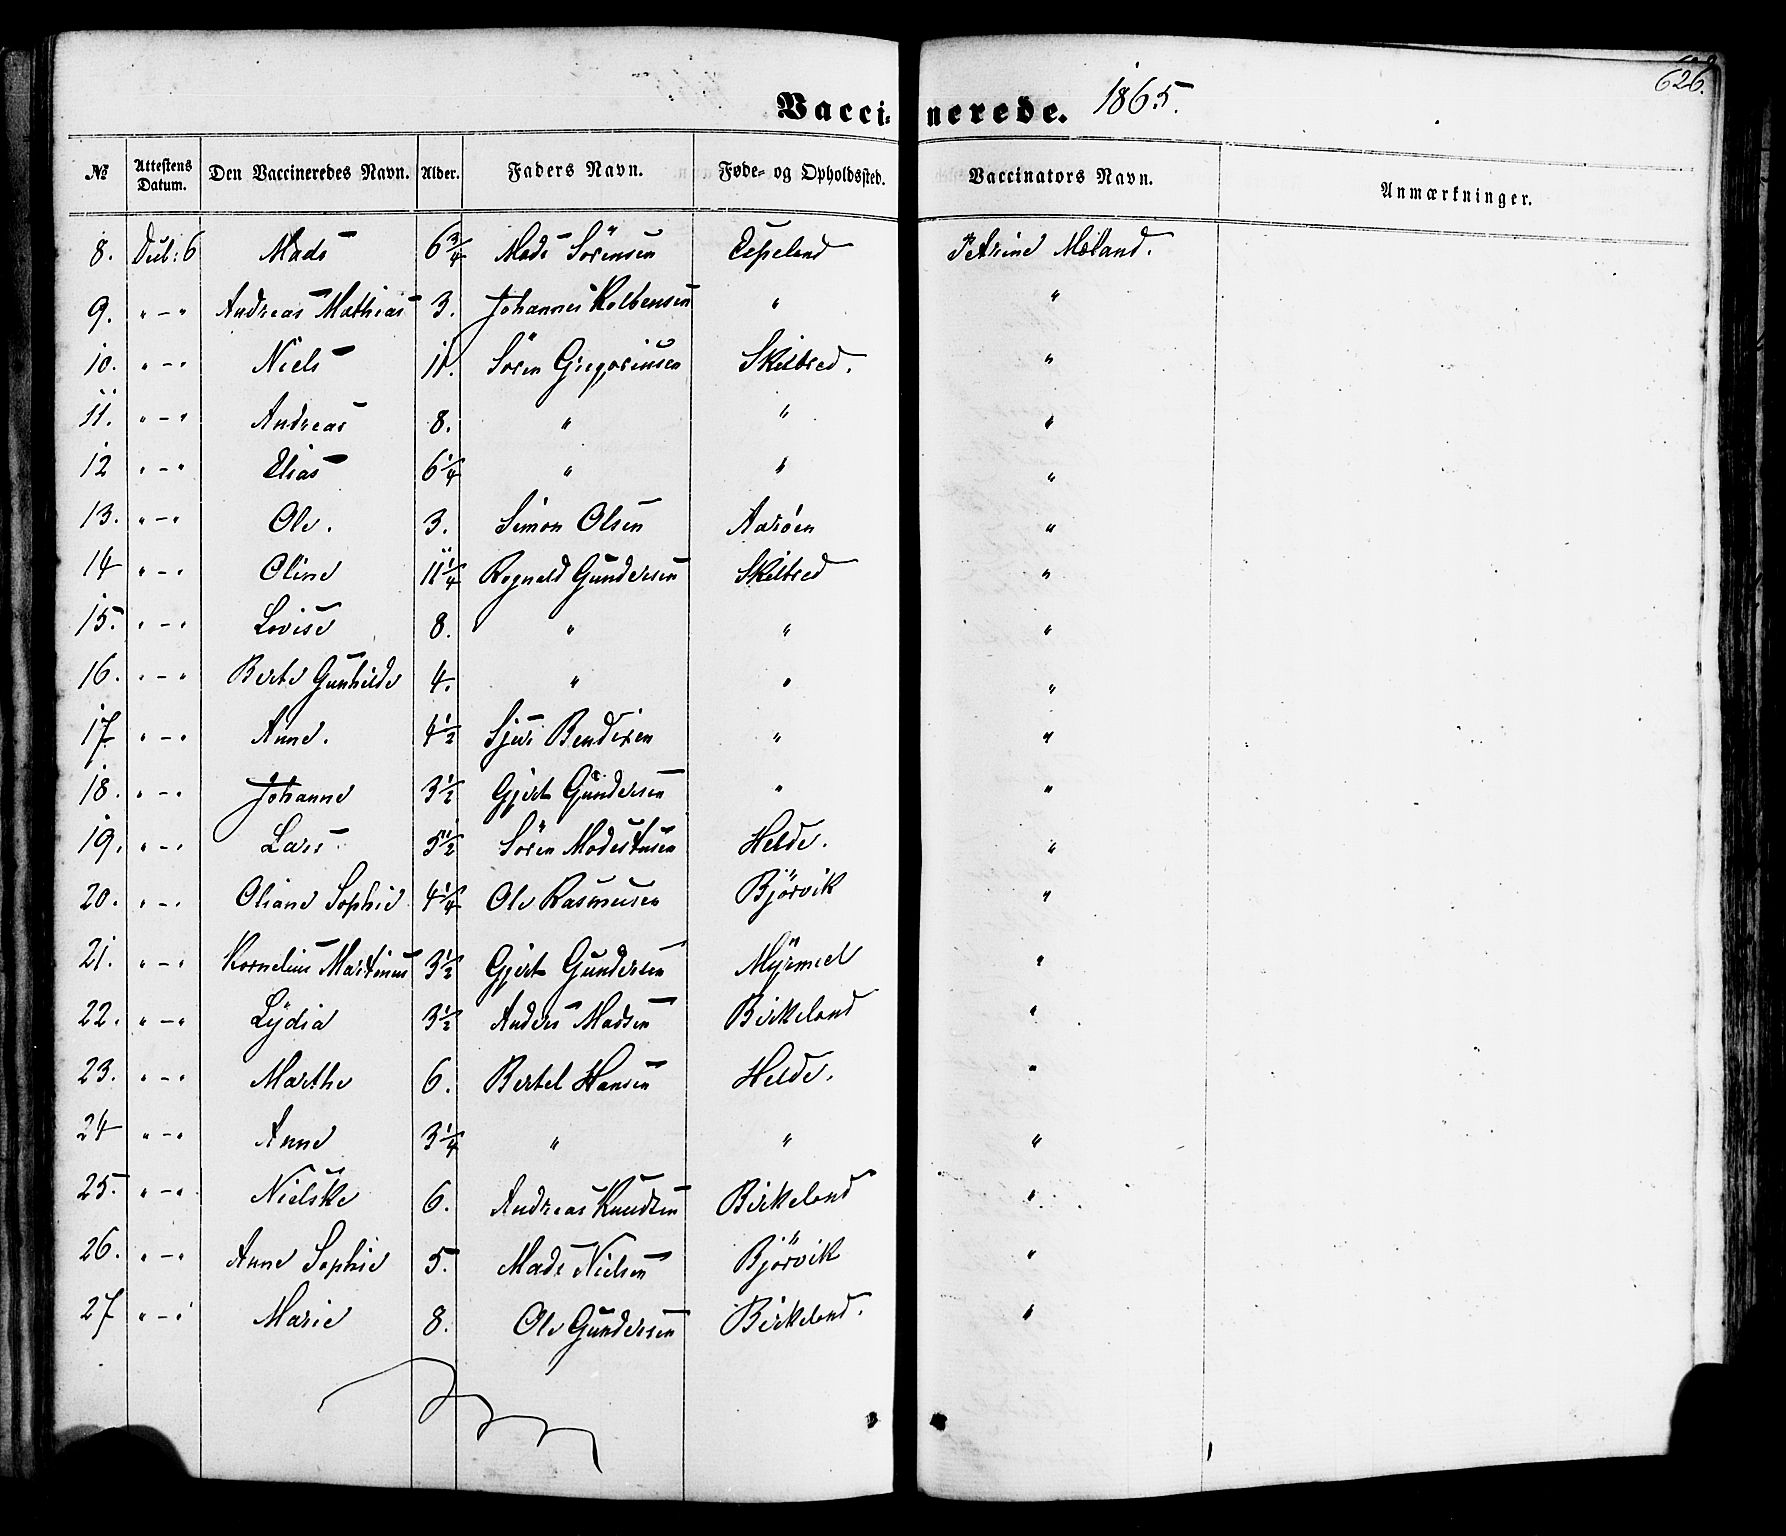 626.
Vaccinerede. 1865.
№ | Attestens Datum. | Den Vaccineredes Navn. | Alder. | Faders Navn. | Føde- og Opholdssted. | Vaccinators Navn. | Anmærkninger.
8. | 6 | Mads | 6 3/4 | Mads Sörensen | Espeland | Petrine Moland.
9. | " – " | Andreas Mathias | 3. | Johannes Kolbensen | " | "
10. | " – " | Niels | 11. | Sören Gregoriusen | Skilbred. | "
11. | " – " | Andreas | 8. | " | " | "
12 | " – " | Elias | 6 1/4 | " | " | "
13. | " – " | Ole. | 3. | Simon Olsen | Aarøen | "
14 | " – " | Oline | 11 1/4 | Rognald Gundersen | Skilbred | "
15. | " – " | Lovise | 8. | " | " | "
16. | " – " | Berte Gunhilde | 4. | " | " | "
17. | " – " | Anne. | 4 1/2 | Sjur Bendixen | " | "
18. | " – " | Johanne | 3 1/2 | Gjert Gundersen | " | "
19. | " – " | Lars | 5 1/2 | Sören Modestusen | Helde. | "
20. | " – " | Oliane Sophie | 4 1/4 | Ole Rasmusen | Bjørvik | "
21. | " – " | Kornelius Martinus | 3 1/2 | Gjert Gundersen | Myrmel | "
22. | " – " | Lydia | 3 1/2 | Anders Madsen | Birkeland | "
23. | " – " | Marthe | 6. | Bertel Hansen | Helde. | "
24 | " – " | Anne | 3 1/4 | " | " | "
25. | " – " | Nielske | 6. | Andreas Knudsen | Birkeland | "
26. | " – " | Anne Sophie | 5. | Mads Nielsen | Bjørvik | "
27 | " – " | Marie | 8. | Ole Gundersen | Birkeland. | "